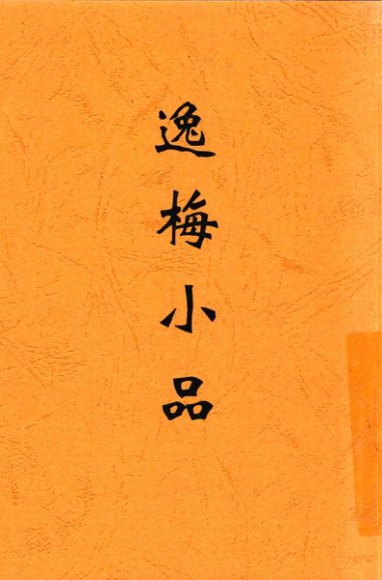 逸梅小品